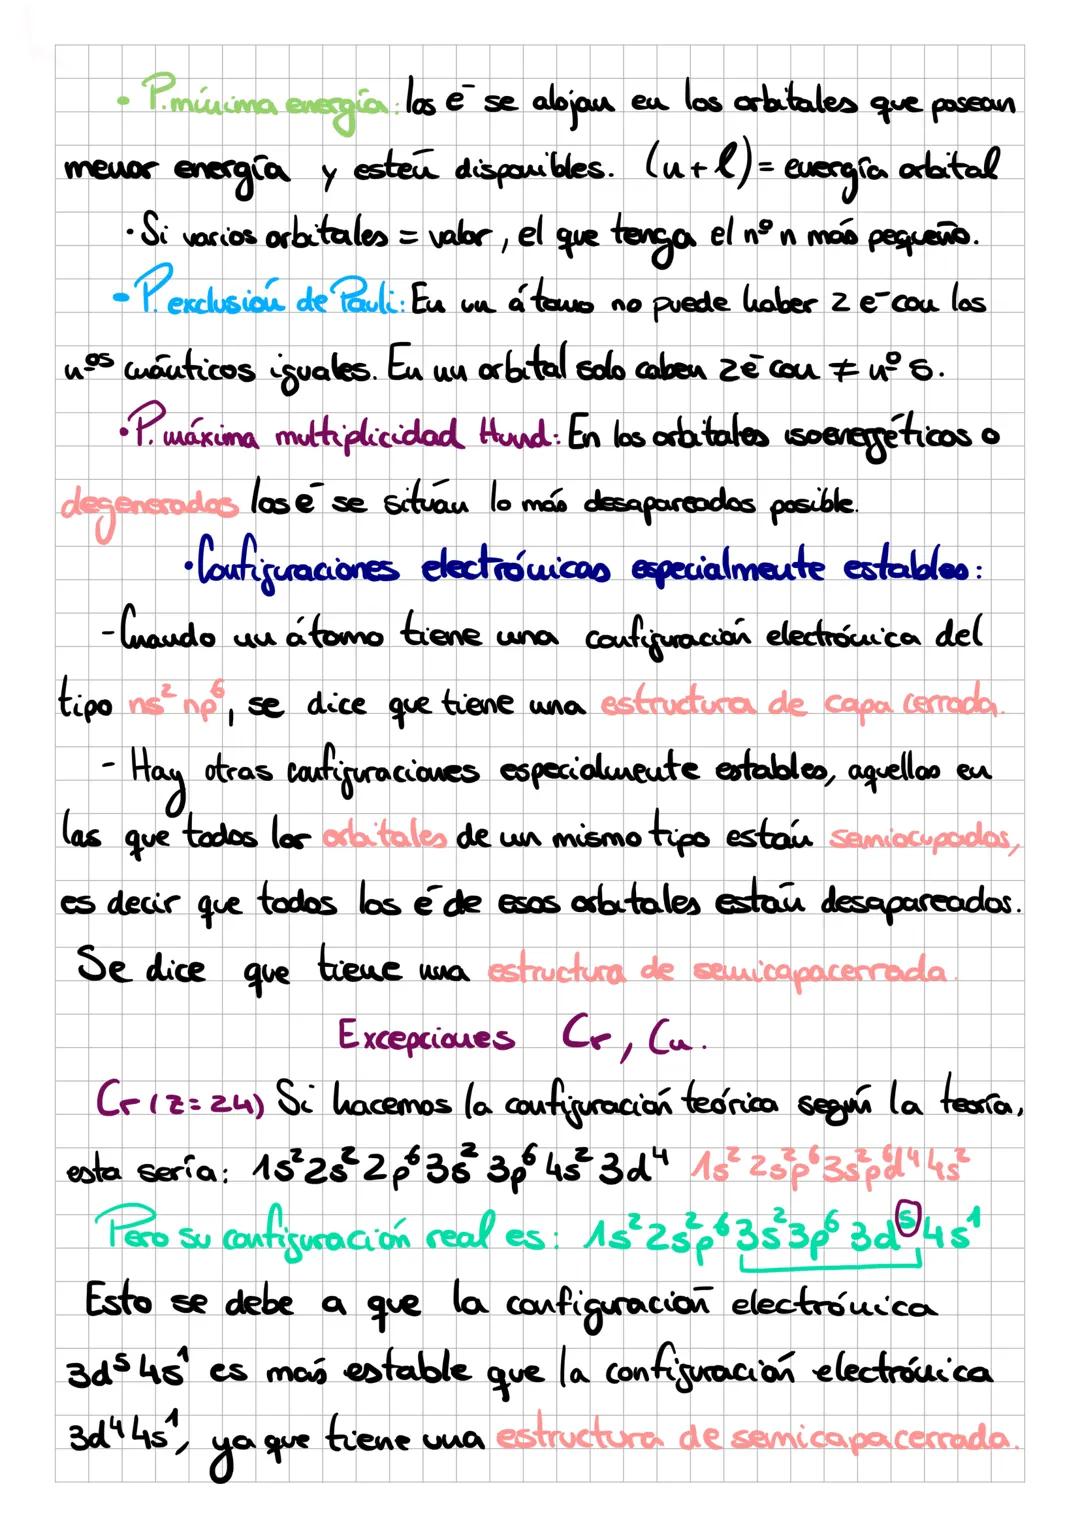 · P. mínima energía: los e⁻ se alojan en los orbitales que posean
menor energía y estén disponibles. (n+l) = energía orbital
· Si varios orbitales = valor, el que tenga el nº n más pequeño.
- P. exclusión de Pauli: En un átomo no puede haber 2 e⁻ con los
nºs cuánticos iguales. En un orbital solo caben 2e⁻ con ≠ nº s.
· P. máxima multiplicidad Hund: En los orbitales isoenergéticos o
degenerados los e⁻ se sitúan lo más desapareados posible.
· Configuraciones electrónicas especialmente estables:
- Cuando un átomo tiene una configuración electrónica del
tipo ns² np⁶, se dice que tiene una estructura de capa cerrada.
- Hay otras configuraciones especialmente estables, aquellas en
las que todos los orbitales de un mismo tipo están semiocupados,
es decir que todos los e⁻ de esos orbitales están desapareados.
Se dice que tiene una estructura de semicapacerrada.
Excepciones Cr, Cu.
Cr (z=24) Si hacemos la configuración teórica según la teoría,
esta sería: 1s² 2s² 2p⁶ 3s² 3p⁶ 4s² 3d⁴ 1s² 2s²p⁶ 3s²p⁶d⁴ 4s²
Pero su configuración real es: 1s² 2s²p⁶ 3s² 3p⁶ 3d⁵ 4s¹
Esto se debe a que la configuración electrónica
3d⁵ 4s¹ es más estable que la configuración electrónica
3d⁴ 4s¹, ya que tiene una estructura de semicapacerrada.